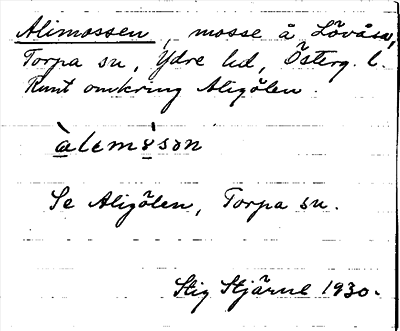 Alimossen, mosse å Lövåsa,
Torpa sn, Ydre hd, Österg. l.
Runt omkring Aligölen.
àlemɤ̀son
Se Aligölen, Torpa sn.
Stig Stjärne 1930.